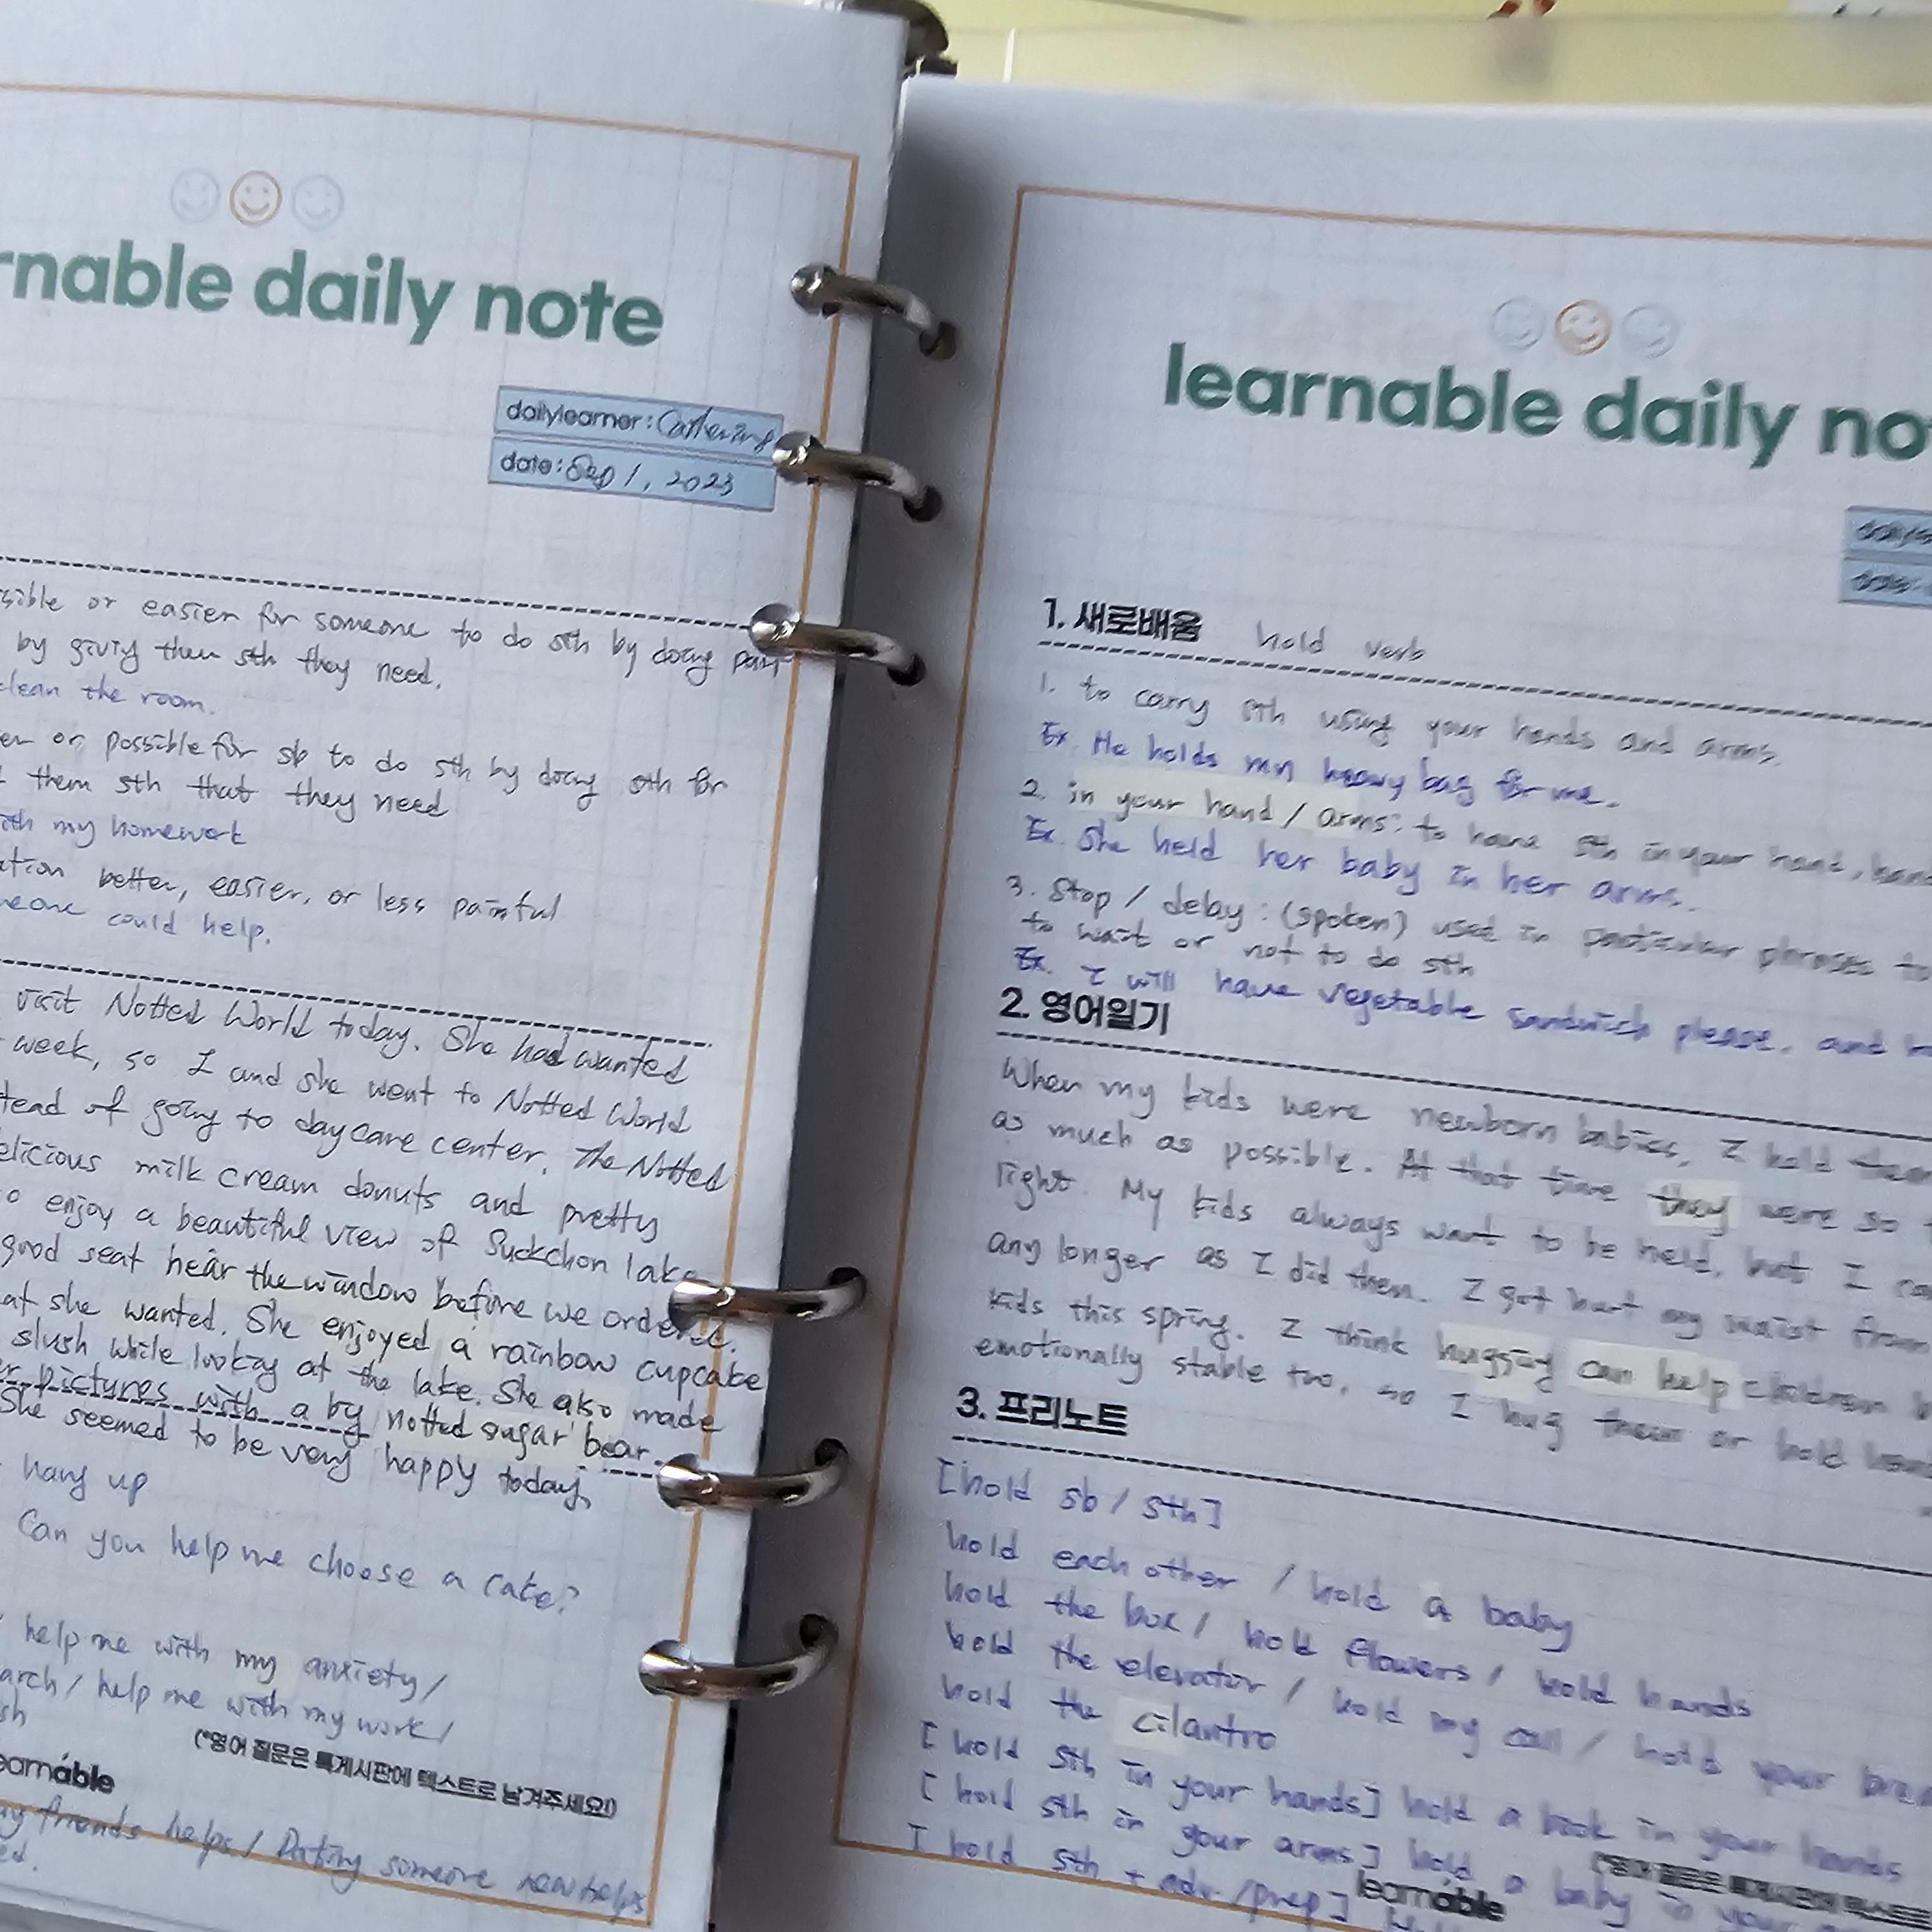 rnable daily note
dailylearner: Catherine
date: Sep 1, 2023
sible or easier for someone to do sth by doing part
by giving them sth they need.
clean the room.
er or possible for sb to do sth by doing sth for
them sth that they need
ith my homework
ation better, easier, or less painful
meone could help.
visit Notted World today. She had wanted
week, so I and she went to Notted World
tead of going to daycare center. The Notted
elicious milk cream donuts and pretty
o enjoy a beautiful view of Suckchon lake
good seat near the window before we ordered.
at she wanted. She enjoyed a rainbow cupcake
slush while looking at the lake. She also made
r pictures with a by notted sugar bear.
She seemed to be very happy today.
hang up
Can you help me choose a cake?
help me with my anxiety/
arch/ help me with my work/
sh
(*영어 질문은 톡게시판에 텍스트로 남겨주세요!)
earnable
my friends helps/ Dating someone new helps
ed.
learnable daily no
1. 새로배움 hold verb
1. to carry sth using your hands and arms.
Ex. He holds my heavy bag for me.
2. in your hand / arms: to have sth in your hand, hand
Ex. She held her baby in her arms.
3. Stop / delay : (spoken) used in particular phrases to
to wait or not to do sth
Ex. I will have vegetable sandwich please, and
2. 영어일기
When my kids were newborn babies, I held them
as much as possible. At that time they were so
light. My kids always want to be held, but I
any longer as I did them. I got hurt my waist from
kids this spring. I think hugging can help children
emotionally stable too, so I hug them or hold
3. 프리노트
[hold sb / sth]
hold each other / hold a baby
hold the box / hold flowers / hold hands
hold the elevator / hold my call / hold your brea
hold the cilantro
[hold sth in your hands] hold a book in your hands
[hold sth in your arms] hold a baby in your
[hold sth + adv /prep]
learnable
(*영어 질문은 톡게시판에 텍스트